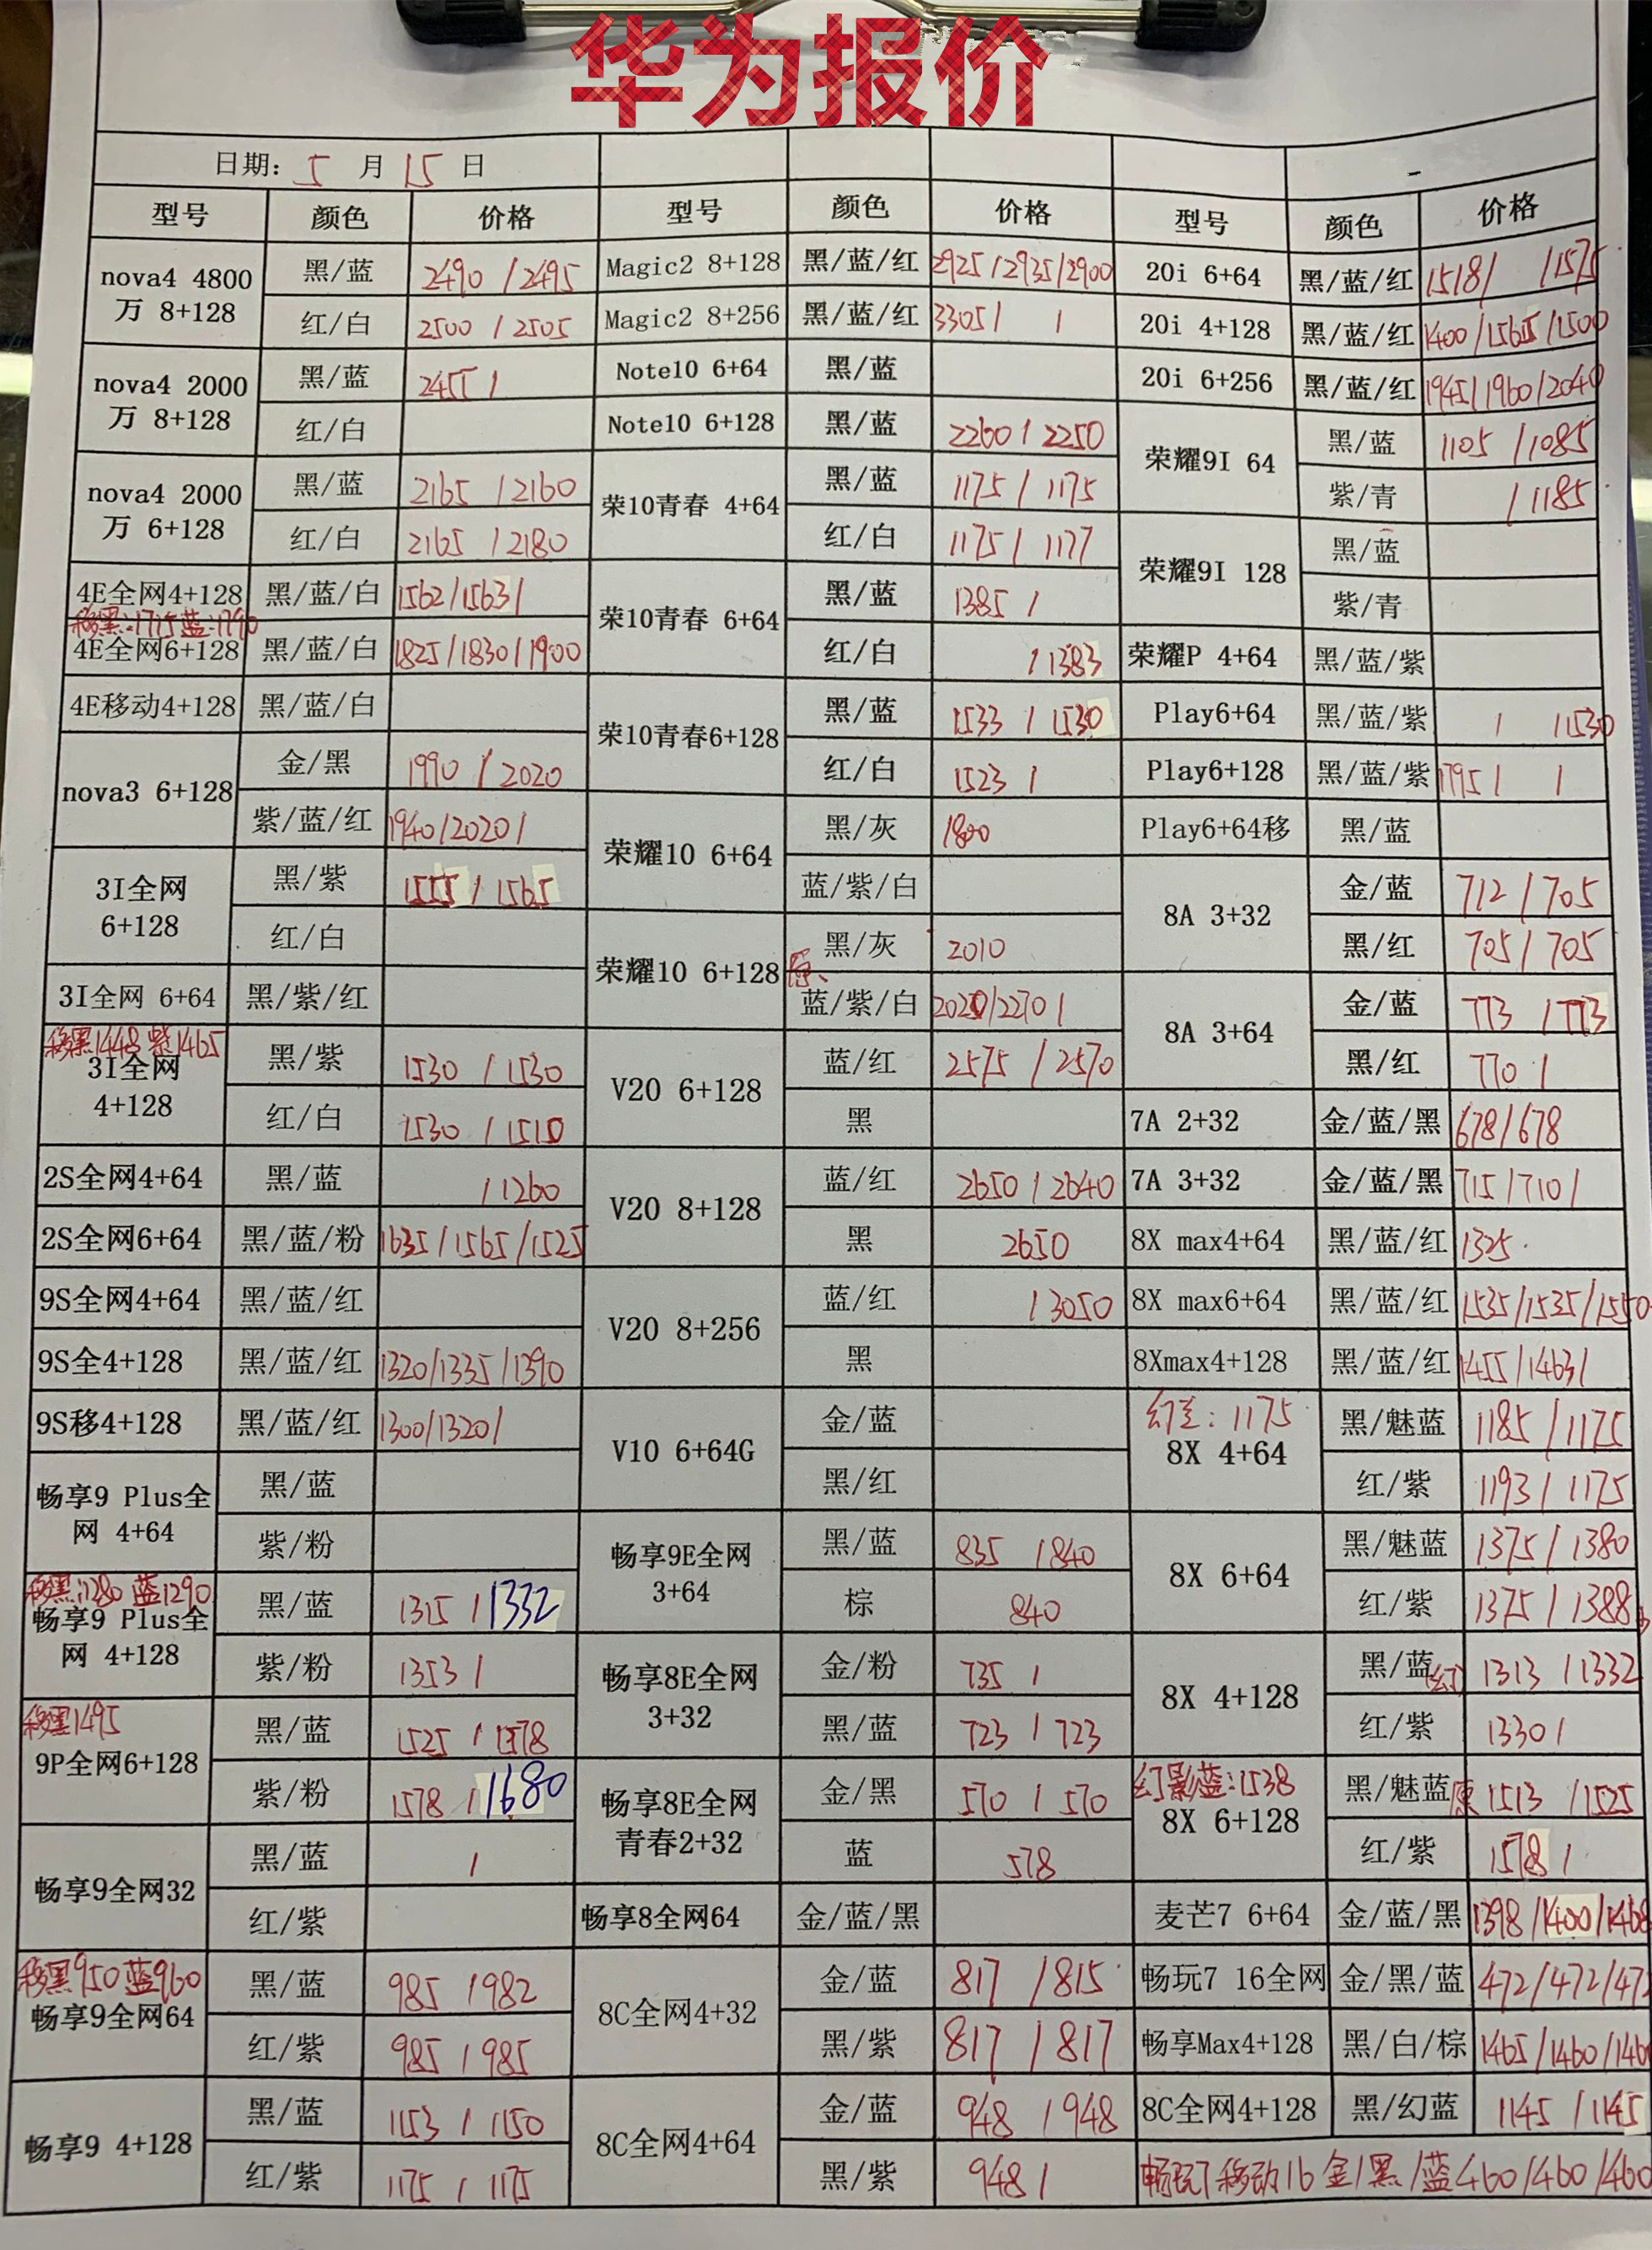 华为报价
日期: 5 月 15 日
型号 颜色 价格 型号 颜色 价格 型号 颜色 价格
nova4 4800万 8+128 黑/蓝 2490 / 2495
红/白 2500 / 2505
nova4 2000万 8+128 黑/蓝 2455 /
红/白
nova4 2000万 6+128 黑/蓝 2165 / 2160
红/白 2165 / 2180
4E全网4+128 黑/蓝/白 1562/1563/
移黑:1715 蓝:1790
4E全网6+128 黑/蓝/白 1825/1830/1900
4E移动4+128 黑/蓝/白
nova3 6+128 金/黑 1990 / 2020
紫/蓝/红 1940/2020/
3I全网 6+128 黑/紫 1555 / 1565
红/白
3I全网 6+64 黑/紫/红
移黑1448 紫1465
3I全网 4+128 黑/紫 1530 / 1530
红/白 1530 / 1510
2S全网4+64 黑/蓝 / 1260
2S全网6+64 黑/蓝/粉 1635/1565/1525
9S全网4+64 黑/蓝/红
9S全4+128 黑/蓝/红 1320/1335/1390
9S移4+128 黑/蓝/红 1300/1320/
畅享9 Plus全网 4+64 黑/蓝
紫/粉
移黑1280 蓝1290
畅享9 Plus全网 4+128 黑/蓝 1315 / 1332
紫/粉 1353 /
移黑1495
9P全网6+128 黑/蓝 1525 / 1578
紫/粉 1578 / 1680
畅享9全网32 黑/蓝 /
红/紫
移黑950 蓝960
畅享9全网64 黑/蓝 985 / 982
红/紫 985 / 985
畅享9 4+128 黑/蓝 1153 / 1150
红/紫 1175 / 1175
Magic2 8+128 黑/蓝/红 2925/2935/2900
Magic2 8+256 黑/蓝/红 3305/ /
Note10 6+64 黑/蓝
Note10 6+128 黑/蓝 2260 / 2250
荣10青春 4+64 黑/蓝 1175 / 1175
红/白 1175 / 1177
荣10青春 6+64 黑/蓝 1385 /
红/白 / 1383
荣10青春6+128 黑/蓝 1533 / 1530
红/白 1523 /
荣耀10 6+64 黑/灰 1800
蓝/紫/白
荣耀10 6+128 黑/灰 2010
原、 蓝/紫/白 2020/2270/
V20 6+128 蓝/红 2575 / 2570
黑
V20 8+128 蓝/红 2650 / 2640
黑 2650
V20 8+256 蓝/红 / 3050
黑
V10 6+64G 金/蓝
黑/红
畅享9E全网 3+64 黑/蓝 835 / 840
棕 840
畅享8E全网 3+32 金/粉 735 /
黑/蓝 723 / 723
畅享8E全网青春2+32 金/黑 570 / 570
蓝 578
畅享8全网64 金/蓝/黑
8C全网4+32 金/蓝 817 / 815
黑/紫 817 / 817
8C全网4+64 金/蓝 948 / 948
黑/紫 948 /
20i 6+64 黑/蓝/红 1518/ /1575
20i 4+128 黑/蓝/红 1400/1565/1500
20i 6+256 黑/蓝/红 1945/1960/2040
荣耀9I 64 黑/蓝 1105 / 1085
紫/青 / 1185
荣耀9I 128 黑/蓝
紫/青
荣耀P 4+64 黑/蓝/紫
Play6+64 黑/蓝/紫 / /1530
Play6+128 黑/蓝/紫 1795/ /
Play6+64移 黑/蓝
8A 3+32 金/蓝 712 / 705
黑/红 705 / 705
8A 3+64 金/蓝 773 / 773
黑/红 770 /
7A 2+32 金/蓝/黑 678/678
7A 3+32 金/蓝/黑 715/710/
8X max4+64 黑/蓝/红 1325
8X max6+64 黑/蓝/红 1535/1535/1550
8Xmax4+128 黑/蓝/红 1455/1463/
1175
8X 4+64 黑/魅蓝 1185 / 1175
红/紫 1193 / 1175
8X 6+64 黑/魅蓝 1375 / 1380
红/紫 1375 / 1388
8X 4+128 黑/蓝(幻) 1313 / 1332
红/紫 1330 /
幻影蓝:1538
8X 6+128 黑/魅蓝 原 1513 / 1525
红/紫 1578 /
麦芒7 6+64 金/蓝/黑 1398/1400/1468
畅玩7 16全网 金/黑/蓝 472/472/472
畅享Max4+128 黑/白/棕 1465/1460/146
8C全网4+128 黑/幻蓝 1145 / 1145
畅玩7移动16 金/黑/蓝 460/460/460